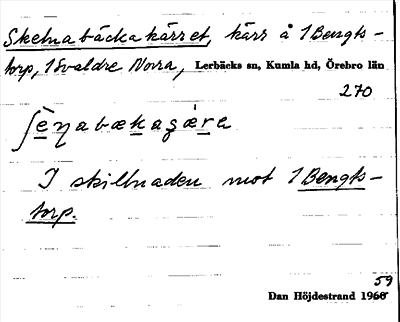 Sketnabäckakärret, kärr å 1 Bengts-
torp, 1 Svaldre Norra, Lerbäcks sn, Kumla hd, Örebro län
270
I skillnaden mot 1 Bengts-
torp.
59
Dan Höjdestrand 1960